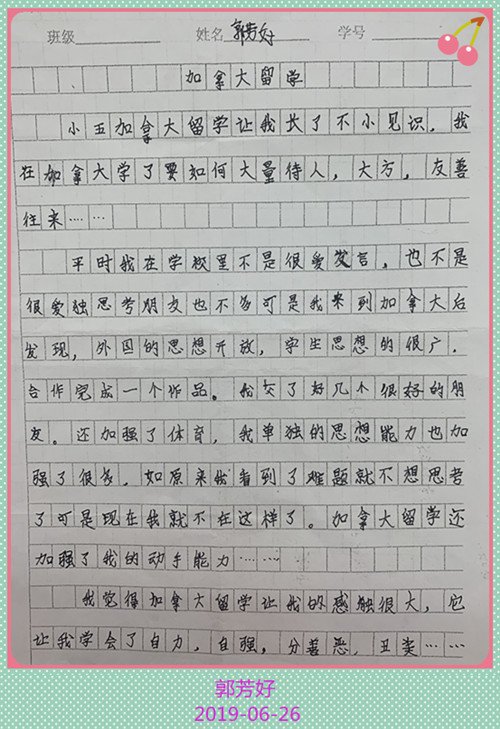 班级 姓名 郭芳好 学号
加拿大留学
小五加拿大留学让我长了不小见识，我
在加拿大学了要如何大量待人，大方，友善
往来……
平时我在学校里不是很爱发言，也不是
很爱独思考朋友也不多可是我来到加拿大后
发现，外国的思想开放，学生思想的很广，
合作完成一个作品。我交了好几个很好的朋
友。还加强了体育，我单独的思想能力也加
强了很多，如原来我看到了难题就不想思考
了可是现在我就不在这样了。加拿大留学还
加强了我的动手能力……
我觉得加拿大留学让我的感触很大，它
让我学会了自力，自强，分善恶，丑类……
郭芳好
2019-06-26